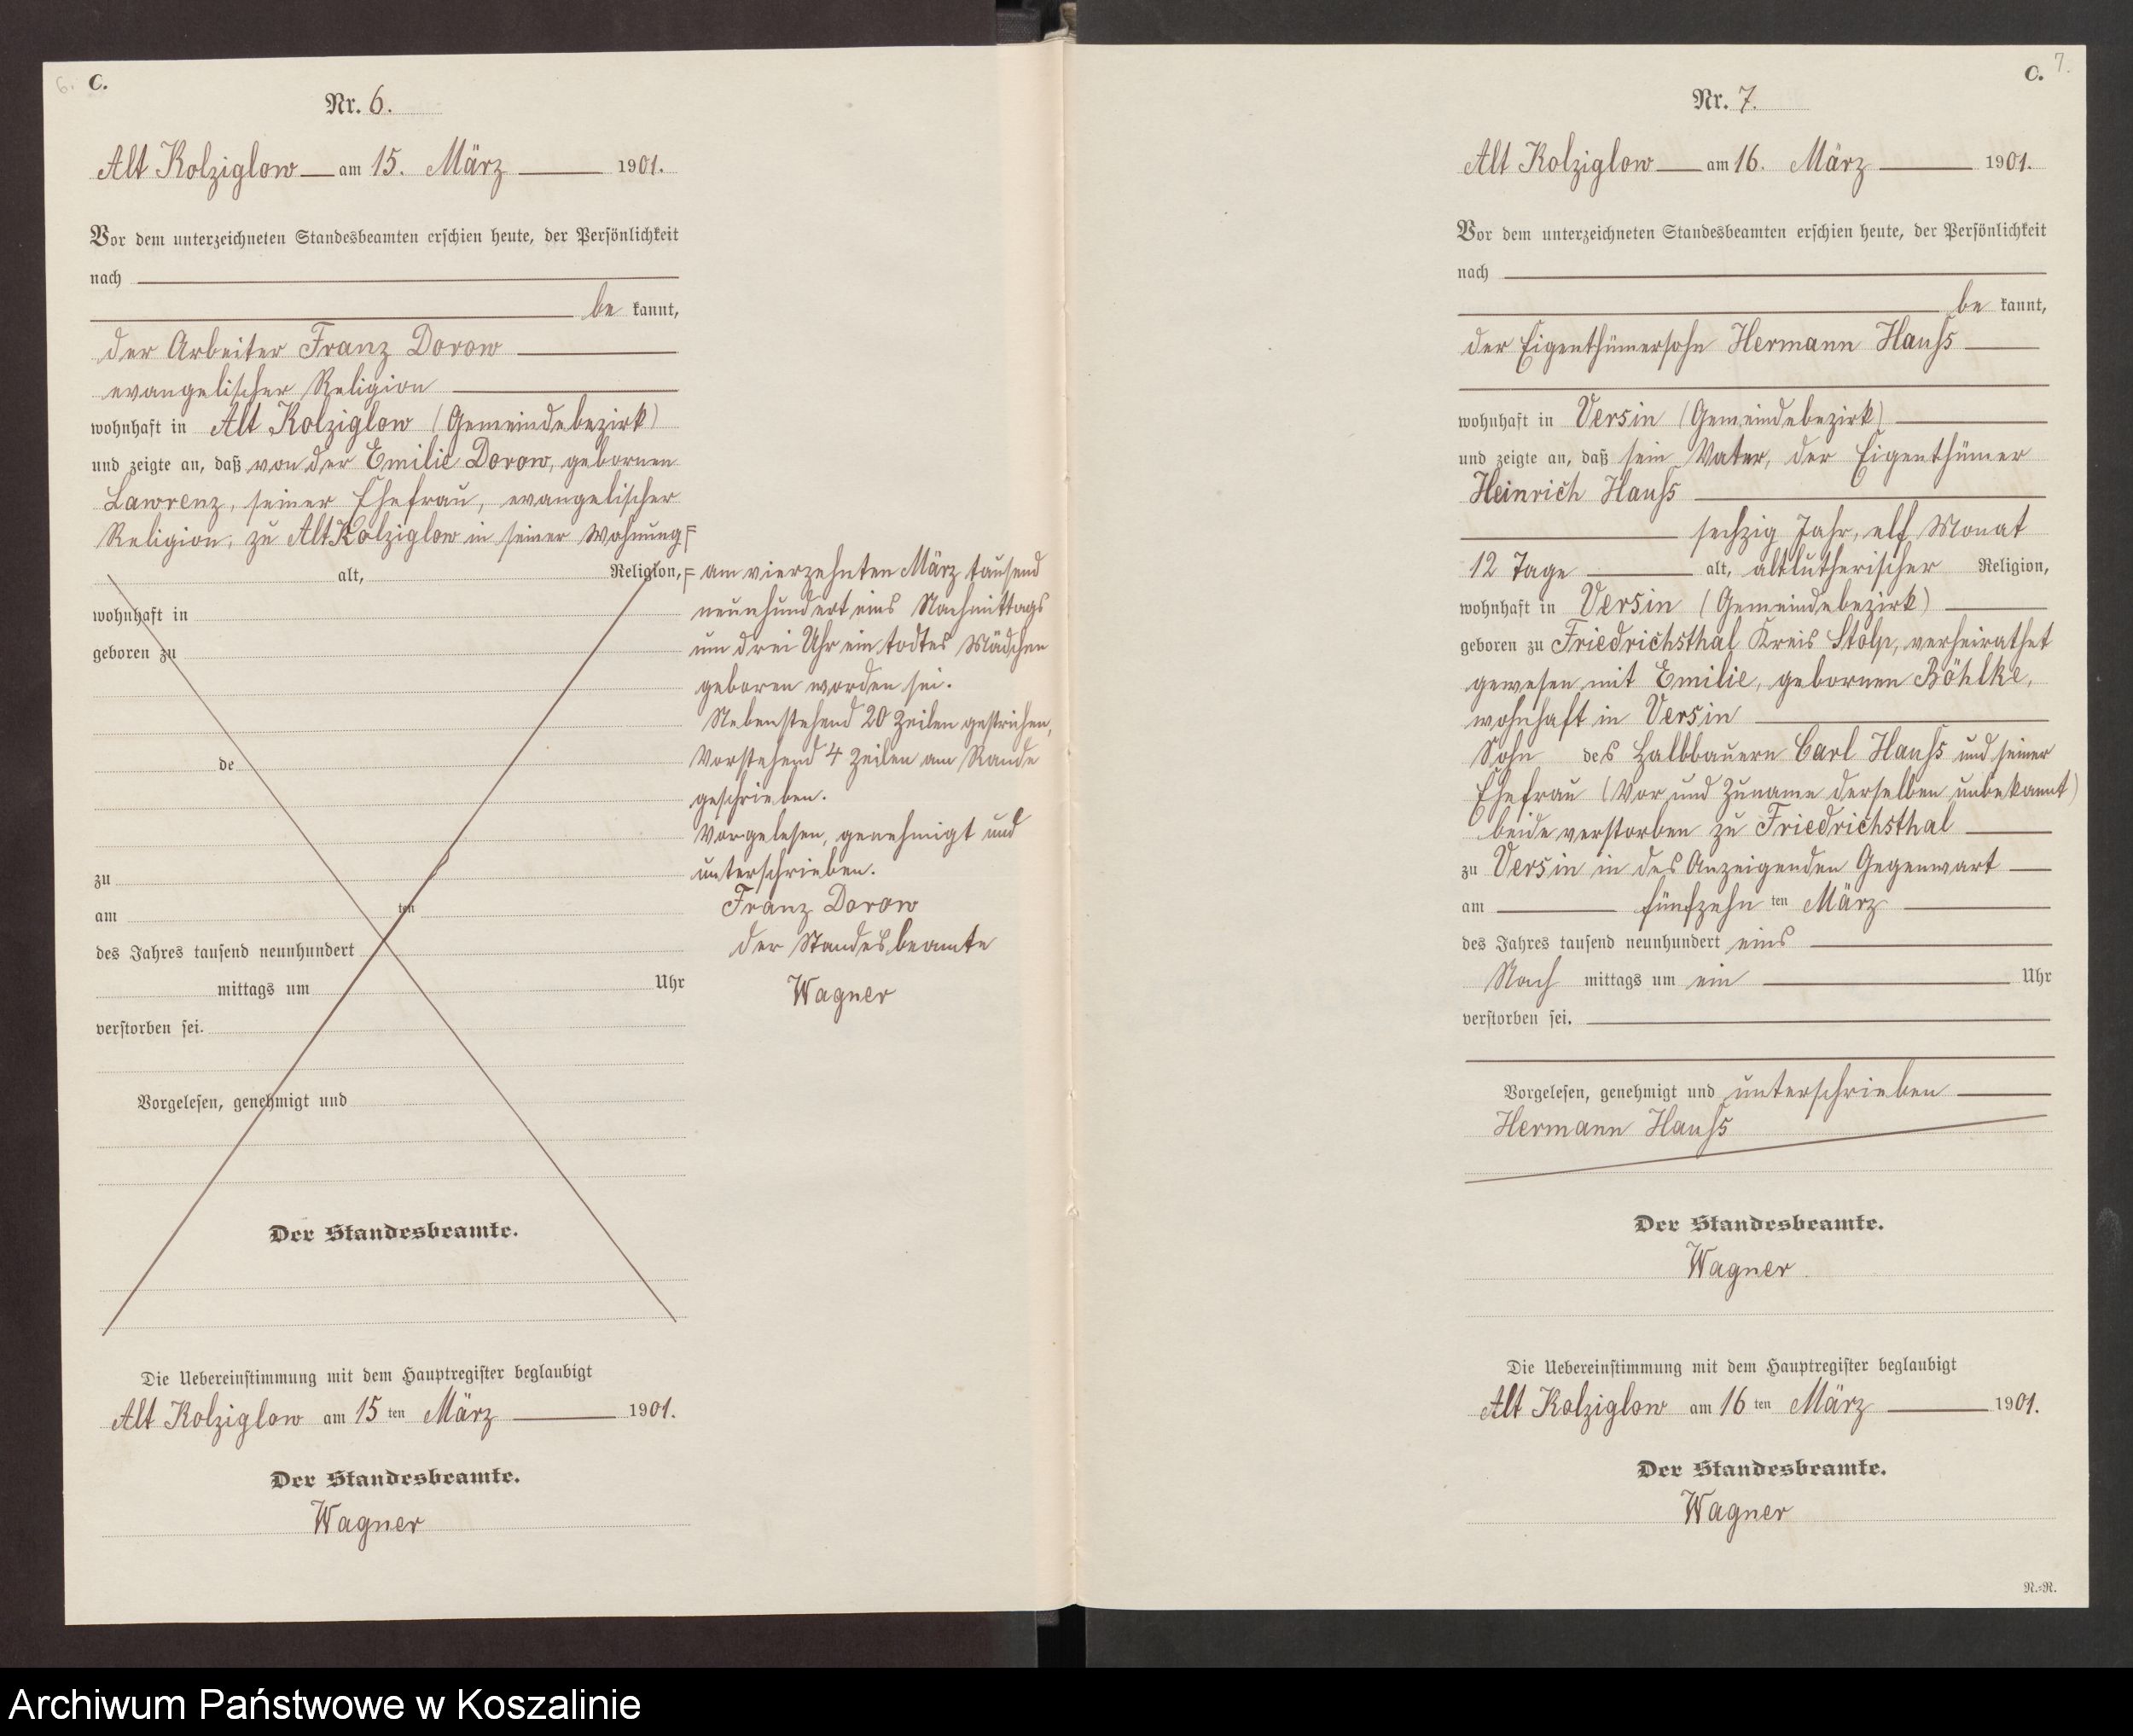 6. C.
Nr. 6.
Alt Kolziglow am 15. März 1901.
Vor dem unterzeichneten Standesbeamten erschien heute, der Persönlichkeit
nach
be kannt,
der Arbeiter Franz Dorow
evangelischer Religion
wohnhaft in Alt Kolziglow (Gemeindebezirk)
und zeigte an, daß von der Emilie Dorow, gebornen
Lawrenz, seiner Ehefrau, evangelischer
Religion, zu Alt Kolziglow in seiner Wohnung
alt, Religion,
wohnhaft in
geboren zu
de
zu
am ten
des Jahres tausend neunhundert
mittags um Uhr
verstorben sei.
Vorgelesen, genehmigt und
Der Standesbeamte.
am vierzehnten März tausend
neunhundert eins Nachmittags
um drei Uhr ein todtes Mädchen
geboren worden sei.
Nebenstehend 20 Zeilen gestrichen,
Vorstehend 4 Zeilen am Rande
geschrieben.
Vorgelesen, genehmigt und
unterschrieben.
Franz Dorow
Der Standesbeamte
Wagner
Die Uebereinstimmung mit dem Hauptregister beglaubigt
Alt Kolziglow am 15 ten März 1901.
Der Standesbeamte.
Wagner
C. 7.
Nr. 7.
Alt Kolziglow am 16. März 1901.
Vor dem unterzeichneten Standesbeamten erschien heute, der Persönlichkeit
nach
be kannt,
der Eigenthümersohn Hermann Hauſs
wohnhaft in Versin (Gemeindebezirk)
und zeigte an, daß sein Vater, der Eigenthümer
Heinrich Hauſs
sechzig Jahr, elf Monat
12 Tage alt, altlutherischer Religion,
wohnhaft in Versin (Gemeindebezirk)
geboren zu Friedrichsthal Kreis Stolp, verheirathet
gewesen mit Emilie, gebornen Böhlke,
wohnhaft in Versin
Sohn des Halbbauern Carl Hauſs und seiner
Ehefrau (Vor und Zuname derselben unbekannt)
beide verstorben zu Friedrichsthal
zu Versin in des Anzeigenden Gegenwart
am fünfzehn ten März
des Jahres tausend neunhundert eins
Nach mittags um ein Uhr
verstorben sei.
Vorgelesen, genehmigt und unterschrieben
Hermann Hauſs
Der Standesbeamte.
Wagner
Die Uebereinstimmung mit dem Hauptregister beglaubigt
Alt Kolziglow am 16 ten März 1901.
Der Standesbeamte.
Wagner
N.=R.
Archiwum Państwowe w Koszalinie